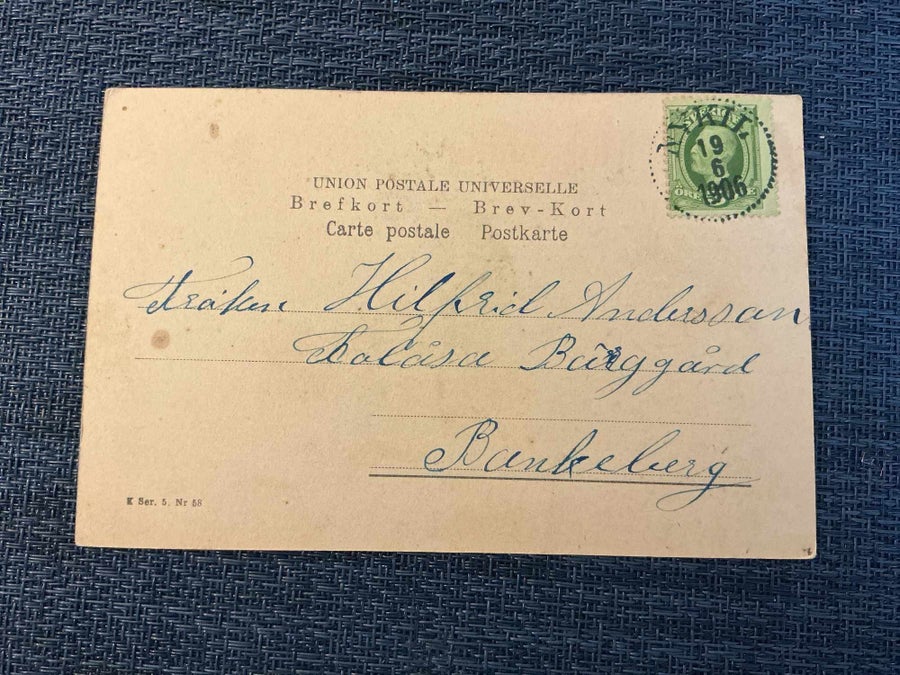 NYKIL
19
6
1906
SVERIGE
UNION POSTALE UNIVERSELLE
Brefkort — Brev-Kort
Carte postale Postkarte
Fröken Hilfrid Andersson
Folåsa Bärggård
Bankeberg
K Ser. 5. Nr 58